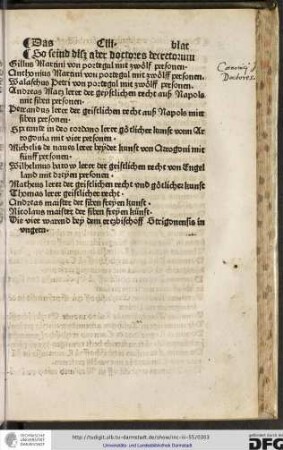 Das CIII. blat
So seind diß nder doctores decretorum
Gillus Martini von portegal mit zwölf personen.
Anthonius Martini von portegal mit zwölff personen.
Walaschus Petri von portegal mit zwölff personen.
Andreas Marz lerer der geystlichen recht auß Napols
mit siben personen.
Petrandus lerer der geistlichen recht auß Napols mitt
siben personen.
de cordano lerer götlicher kunst vom Ar
rogonia mit vier personen.
Michelis de naues lerer beyder kunst von Arrogoni mit
fünff personen.
Wilhelmus baro w lerer der geistlichen recht von Engel
land mit dreyen personen.
Matheus lerer der geistlichen recht vnd götlicher kunst
Thomas lerer geistlicher recht.
Andreas maister der siben freyen kunst.
Nicolaus maister der siben freyen künst.
Die vier warend bey dem ertzbischoff Strigonensis in
vngern.
Doctores.
http://tudigit.ulb.tu-darmstadt.de/show/inc-iii-55/0203
Universitäts- und Landesbibliothek Darmstadt
TECHNISCHE UNIVERSITÄT DARMSTADT
DFG